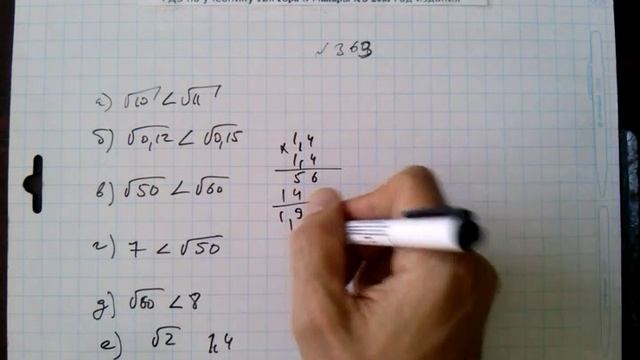 № 363
а) √10 < √11
б) √0,12 < √0,15
в) √50 < √60
г) 7 < √50
д) √60 < 8
е) √2 1,4
× 1,4
1,4
5 6
1 4
1, 9